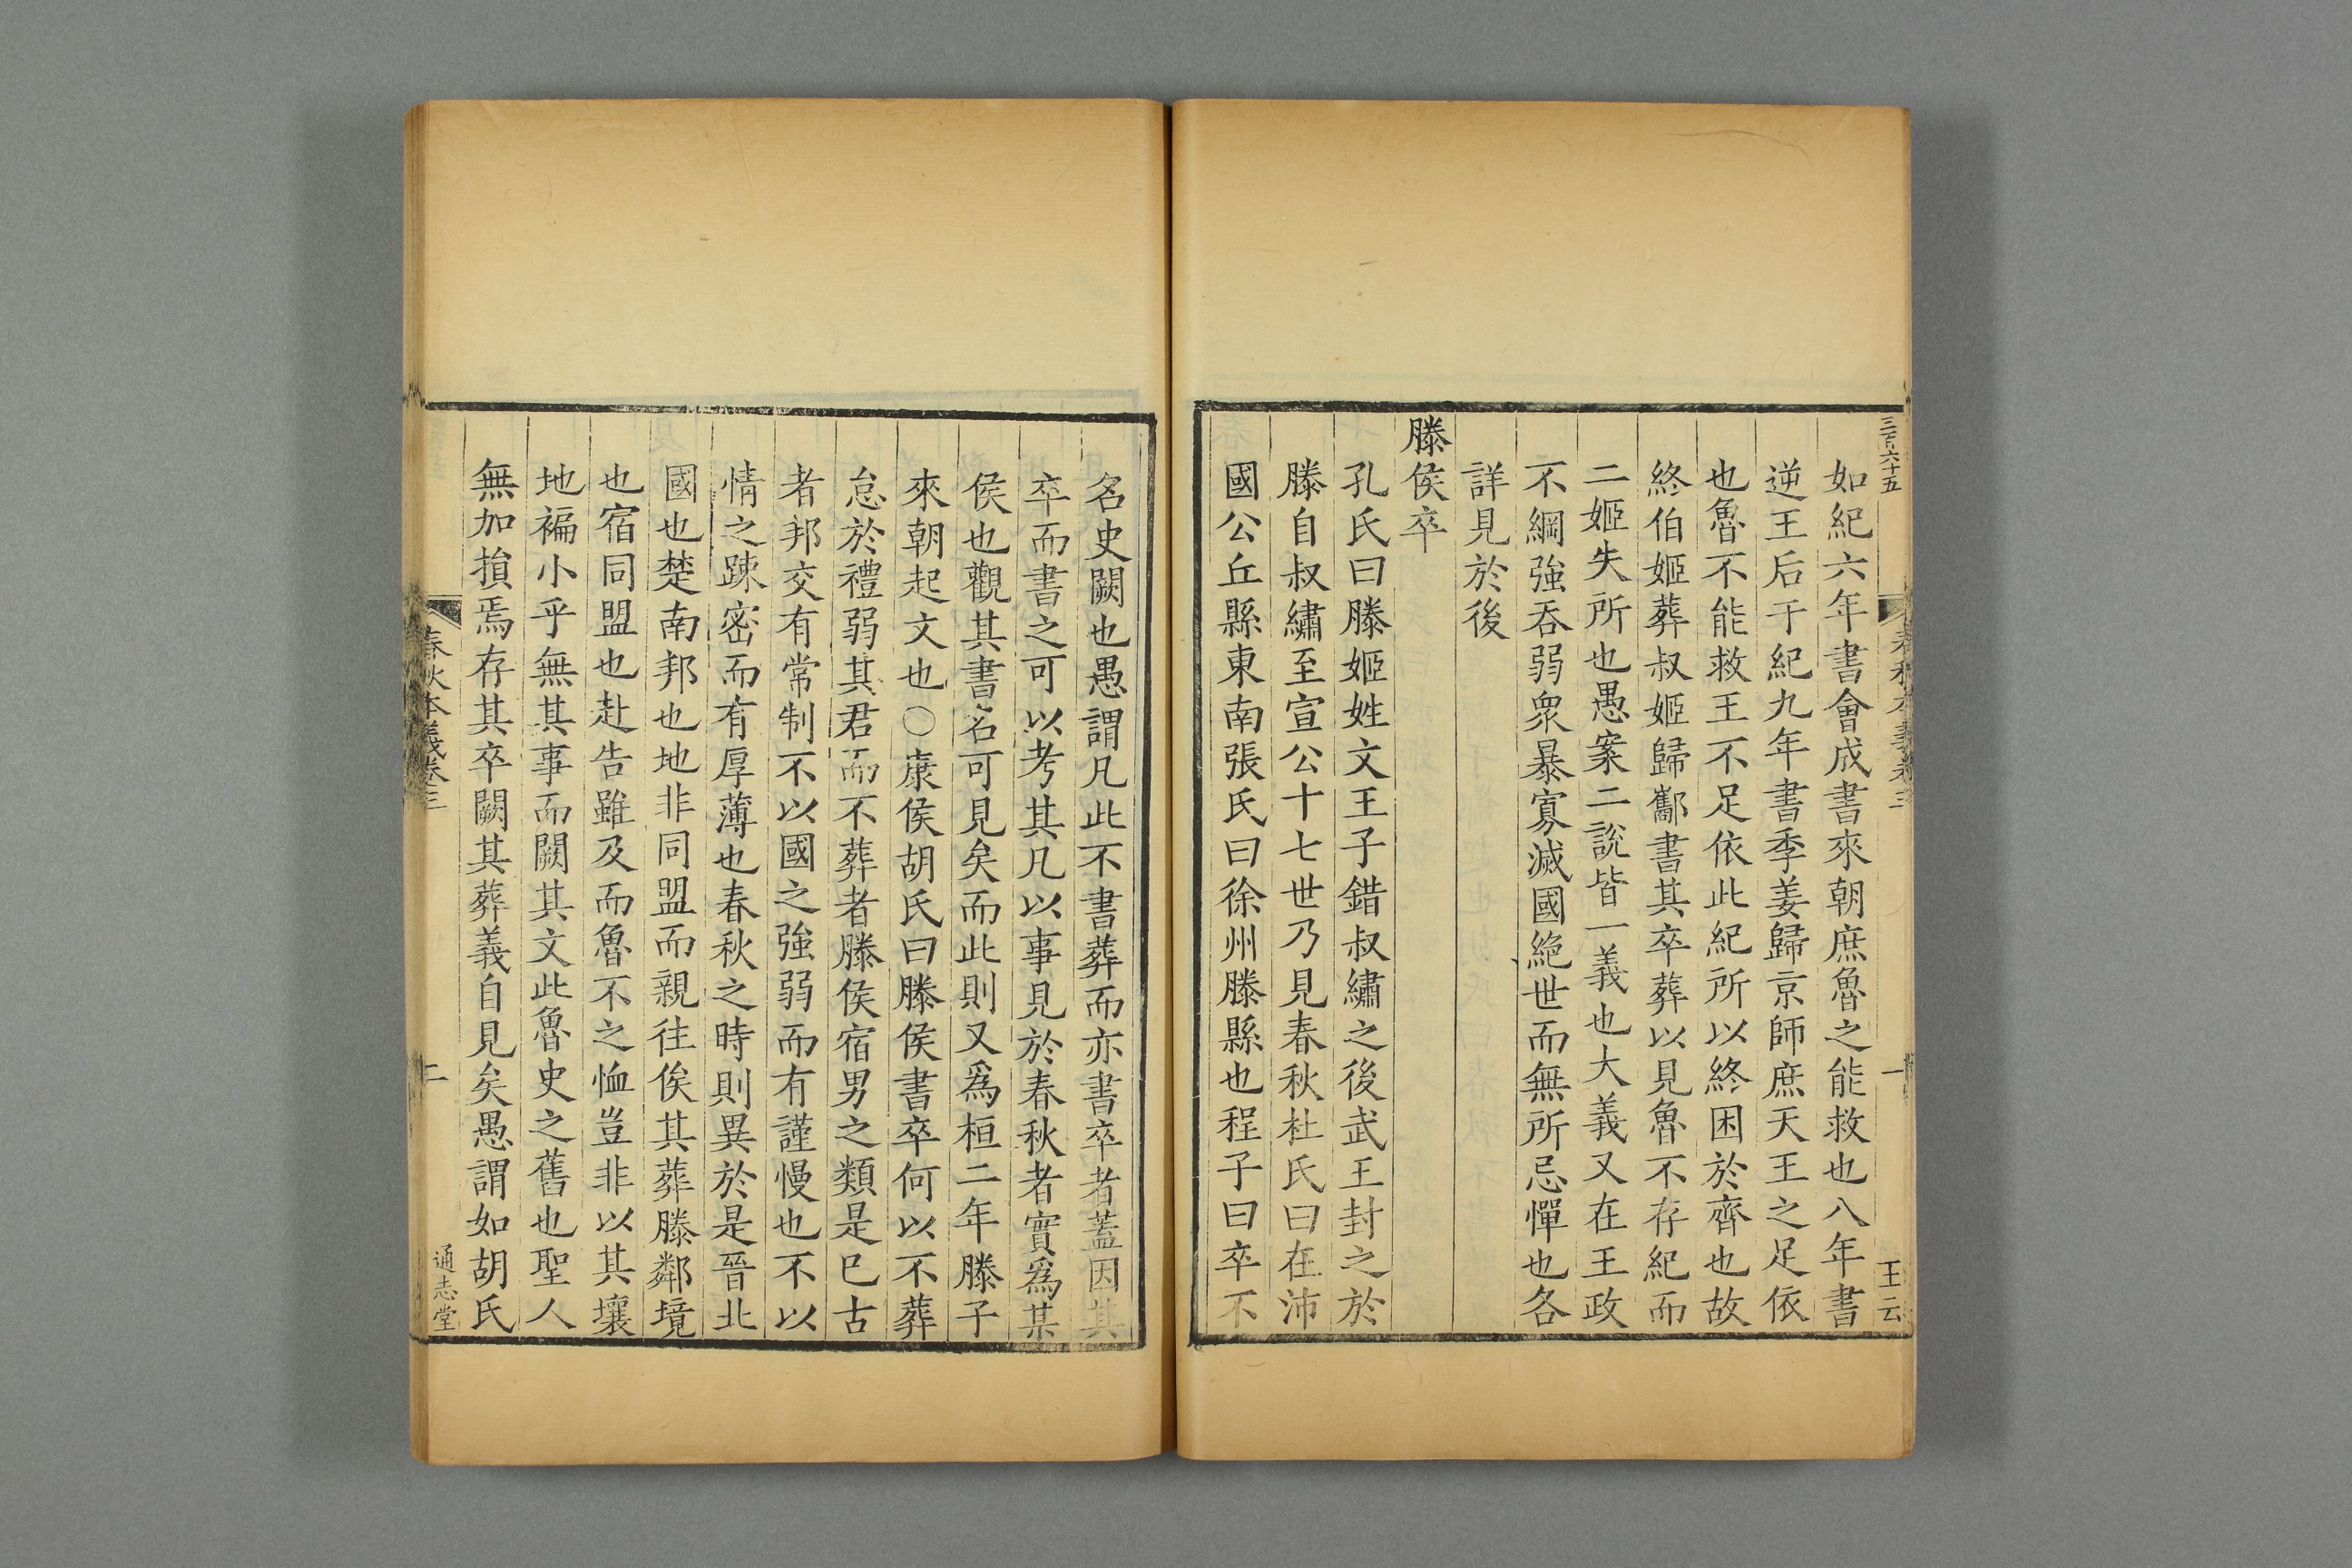 三百六十五
春秋本義卷三
一
王云
如紀六年書會成書來朝庶魯之能救也八年書
逆王后于紀九年書季姜歸京師庶天王之足依
也魯不能救王不足依此紀所以終困於齊也故
終伯姬葬叔姬歸酅書其卒葬以見魯不存紀而
二姬失所也愚案二說皆一義也大義又在王政
不綱強吞弱衆暴寡滅國絕世而無所忌憚也各
詳見於後
滕侯卒
孔氏曰滕姬姓文王子錯叔繡之後武王封之於
滕自叔繡至宣公十七世乃見春秋杜氏曰在沛
國公丘縣東南張氏曰徐州滕縣也程子曰卒不
名史闕也愚謂凡此不書葬而亦書卒者蓋因其
卒而書之可以考其凡以事見於春秋者實爲某
侯也觀其書名可見矣而此則又爲桓二年滕子
來朝起文也○康侯胡氏曰滕侯書卒何以不葬
怠於禮弱其君而不葬者滕侯宿男之類是巳古
者邦交有常制不以國之強弱而有謹慢也不以
情之踈密而有厚薄也春秋之時則異於是晉北
國也楚南邦也地非同盟而親往俟其葬滕鄰境
也宿同盟也赴告雖及而魯不之恤豈非以其壤
地褊小乎無其事而闕其文此魯史之舊也聖人
無加損焉存其卒闕其葬義自見矣愚謂如胡氏
春秋本義卷三
二
通志堂